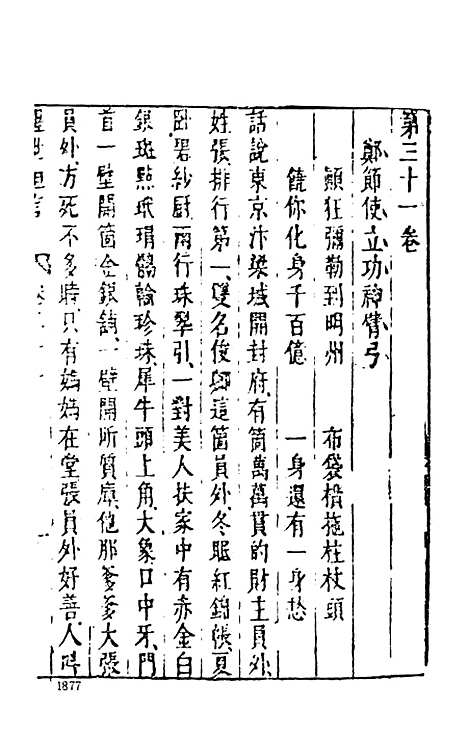 第三十一卷
鄭節使立功神臂弓
顛狂彌勒到明州　布袋橫拖拄杖頭
饒你化身千百億　一身還有一身愁
話說東京汴梁城開封府有箇萬萬貫的財主員外
姓張排行第一雙名俊卿這箇員外冬眠紅錦帳夏
臥碧紗厨兩行珠翠引一對美人扶家中有赤金白
銀斑點玳瑁鶻輪珍珠犀牛頭上角大象口中牙門
首一壁開箇金銀舖一壁開所質庫他那爹爹大張
員外方死不多時只有媽媽在堂張員外好善人叫
醒世恒言
1877